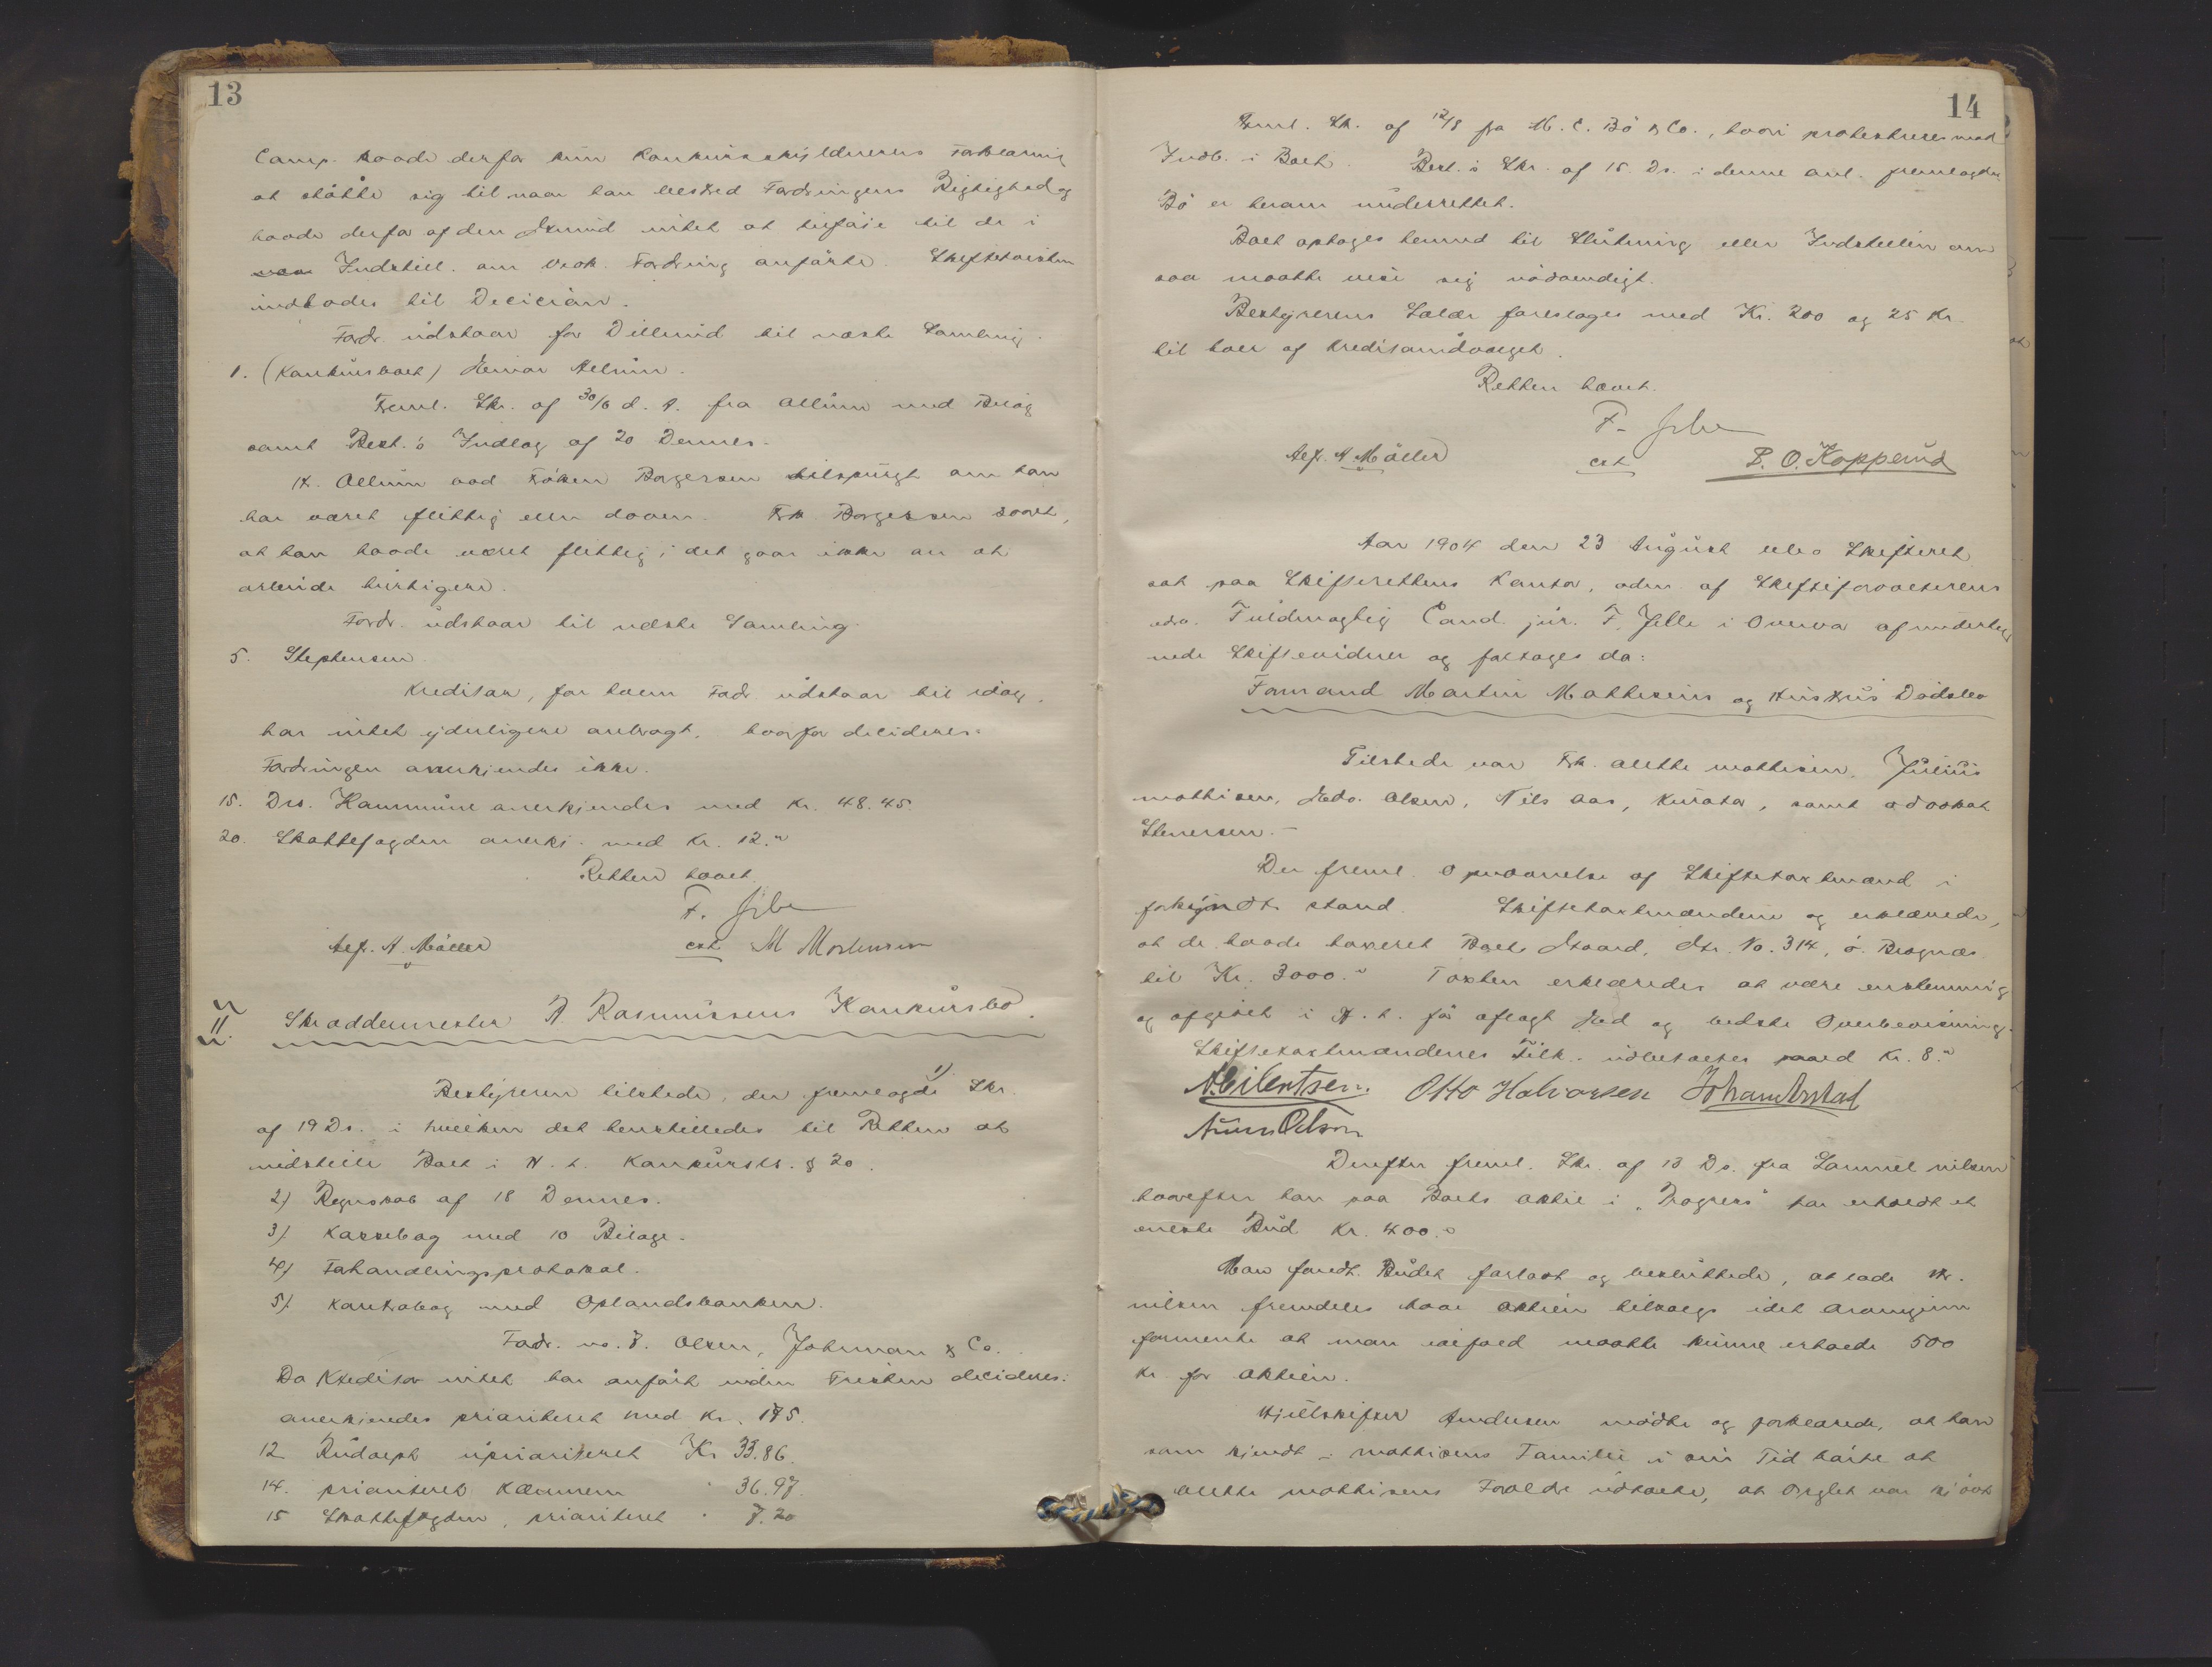 13
Comp. havde derfor kun Konkursskyldnerens Forklaring
at støtte sig til naar han bestred Fordringens Rigtighed og
havde derfor af den Grund intet at tilføie til de i
Indstill. om vedk. Fordring anførte. Skifteforvalteren
indbødes til Decision.
Fordr. udstaar for Dillerud til næste Samling.
1. (Konkursboet)
Freml. Skr. af 30/6 d. A. fra Allum med Bilag
samt Best.s Indlæg af 20 Dennes.
Hr. Allum bad Frøken Borgersen tilspurgt om han
har været flittig eller doven. Frk. Borgersen svaret,
at han havde været flittig; det gaar ikke an at
arbeide hurtigere.
Fordr. udstaar til næste Samling.
5. Stephensen.
Kreditor, for hvem Fordr. udstaar til idag,
har intet yderligere anbragt, hvorfor decideres:
Fordringen anerkjendes ikke.
15. Drs. Kommune anerkjendes med Kr. 48.45.
20. Skattefogden anerkj. med Kr. 12."
Retten hævet.
F. Jelle
Aef. A. Møller
cst M Mortensen
II. Skræddermester A. Rasmussens Konkursbo.
Bestyreren tilstede, der fremlagde 1) Skr.
af 19 Ds. i hvilken det henstilledes til Retten at
indstille Boet i H. t. Konkursls. § 20.
2) Regnskab af 18 Dennes.
3) Kassebog med 10 Bilage.
4) Forhandlingsprotokol.
5) Kontrabog med Oplandsbanken.
Fordr. no. 7. Olsen, Johnman & Co.
Da Kreditor intet har anført inden Fristen decideres:
anerkjendes prioriteret med Kr. 175.
12 Rudolph uprioriteret Kr 33.86.
14. prioriteret Kæmneren " 36.97.
15 Skattefogden, prioriteret " 7.20
14
Freml. Skr. af 12/8 fra M. C. Bö & Co., hvori protesteres mod
Indb. i Boet. Best.s Skr. af 15. Ds. i denne anl. fremlagdes
Bö er herom underrettet.
Boet optages hermed til Slutning eller Indstillin om
saa maatte vise sig nødvendigt.
Bestyrerens Salær foreslages med Kr. 200 og 25 Kr.
til hver af Kreditorudvalget.
Retten hævet.
F. Jelle
Aef. A Møller
cst P. O. Kopperud
Aar 1904 den 23 August blev Skifteret
sat paa Skifterettens Kontor, adm. af Skifteforvalterens
edsv. Fuldmægtig Cand. jur. F. Jelle i Overvær af underteg
nede Skiftevidner og foretoges da:
Formand Martin Mathisens og Hustrus Dødsbo
Tilstede var Frk. Alette Mathisen, Julius
Mathisen, Edv. Olsen, Nils Aas, Kurator, samt Advokat
Stenersen.-
Der freml. Opnævnelse af Skiftetaxtmænd i
forkyndt stand. Skiftetaxtmændene og erklærede,
at de havde taxeret Boets Gaard, Gr. No. 314, ö. Bragnæs
til Kr. 3000." Taxten erklæredes at være enstemmig
og afgivet i H. t. før aflagt Ed og bedste Overbevisning.
Skiftetaxtmændenes Tilk. udbetaltes med Kr. 8."
A. Eilertsen. Otto Halvorsen
Olsen
Derefter freml. Skr. af 13 Ds. fra Samuel Nilsen
hvorefter han paa Boets Aktie i "Progress" har erholdt et
eneste Bud Kr. 400."
Man fandt Budet for lavt og besluttede, at lade Hr.
Nilsen fremdeles have Aktien tilsalgs idet Arvingerne
formente at man ialfald maatte kunne erholde 500
Kr. for Aktien.
Hjulskifter Andersen mødte og forklarede, at han
som kjendt i Mathisens Familie i sin Tid hørte at
Alette Mathisens Forældre udtalte, at Orglet var kjøbt